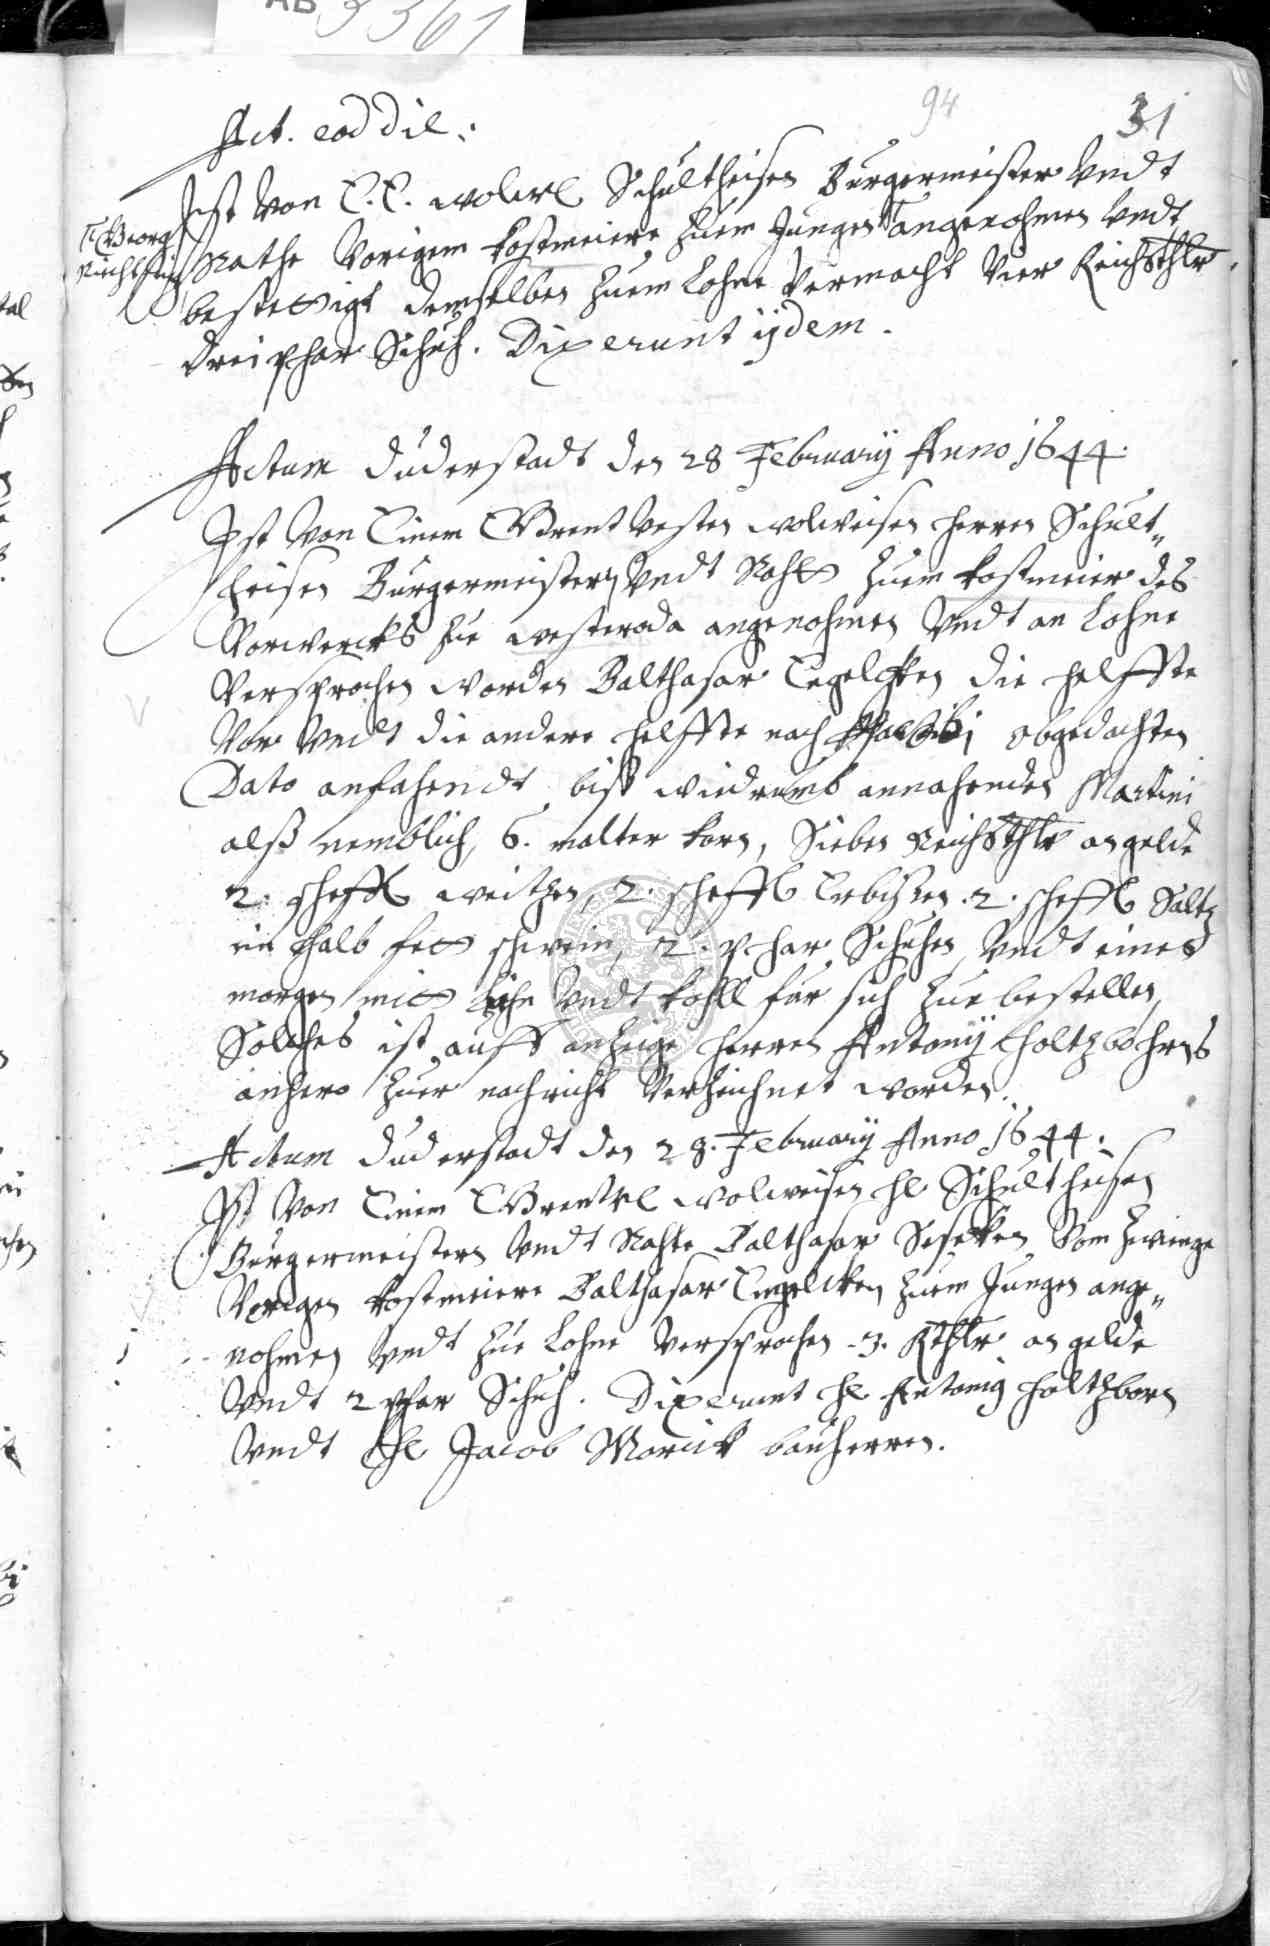 AB 3361
94
31
Act. eod die:
Ist von E. E. wolw. Schultheisen Burgermeister vndt
Georg
Rathe Vorigem kostmeiere zum Jungen angenohmen vndt
bestettigt demselben zum Lohne vermacht vier Reichsthlr
drei phar Schuh. Dixerunt ijdem.
Actum Duderstadt den 28 February Anno 1644.
Ist von Einem Ehrentvesten wolweisen herren Schult„
heisen Burgermeistern vndt Raht zum kostmeier des
Vorwercks zu westeroda angenohmen vndt an Lohne
Versprochen worden Balthasar Tegelcken die helffte
Vor vndt die andere helffte nach Jacobi obgedachten
Dato anfahendt biß wiedrumb annahenden Martini
alß nemblich, 6. malter korn, Sieben Reichsthlr an gelde
2. scheffl weitzen, 2. scheffl Erbißen. 2. scheffl Saltz
ein halb fett schwein, 2. phar Schuhe, vndt einen
morgen mit vndt kohll fur sich zu bestellen,
Solches ist auff anzeige herren Antonij Holtzbohrns
anhero zur nachricht Verzeichnet worden.
Actum Duderstadt den 28. February Anno 1644.
Ist von Einem Ehrentv wolweisen h Schultheisen
Burgermeistern vndt Rahte Balthasar vom Zwinge
Vorigen kostmeiere Balthasar Tegelcken zum Jungen ange„
nohmen vndt zu Lohne versprochen 3. Rthlr an gelde
vndt 2 phar Schuh. Dixerunt h Antonig Holtzborn
vndt h Jacob Marick bauherren.